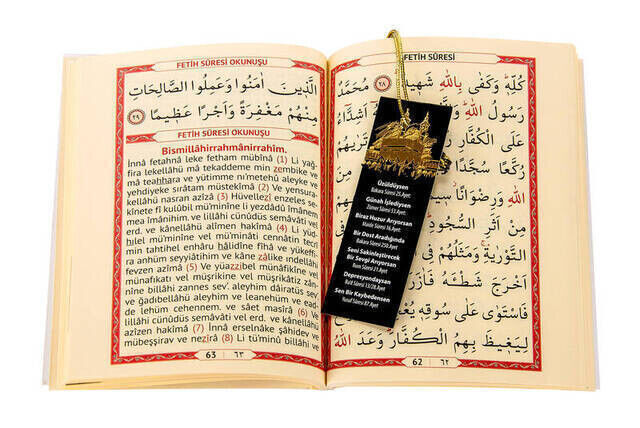 FETİH SÛRESİ
كُلِّهٖ وَكَفٰى بِاللّٰهِ شَهٖيدًا ﴿٢٨﴾ مُحَمَّدٌ
رَسُولُ اللّٰهِ اَشِدَّٓاءُ
عَلَى الْكُفَّارِ تَرٰيهُمْ
رُكَّعًا سُجَّدًا
اللّٰهِ وَرِضْوَانًا
مِنْ اَثَرِ السُّجُودِ
التَّوْرٰيةِ وَمَثَلُهُمْ
اَخْرَجَ شَطْـَٔهُ
فَاسْتَوٰى عَلٰى سُوقِهٖ
لِيَغٖيظَ بِهِمُ الْكُفَّارَ وَعَدَ اللّٰهُ
62 ٦٢
Üzüldüysen
Bakara Sûresi 25.Ayet
Günah İşlediysen
Zümer Sûresi 53.Ayet
Biraz Huzur Arıyorsan
Bir Dost Aradığında
Seni Sakinleştirecek
Bir Sevgi Arıyorsan
Rum Sûresi 21.Ayet
Depresyondaysan
Sen Bir Kaybedensen
Yusuf Sûresi 87.Ayet
FETİH SÛRESİ OKUNUŞU
الَّذٖينَ اٰمَنُوا وَعَمِلُوا الصَّالِحَاتِ
مِنْهُمْ مَغْفِرَةً وَاَجْرًا عَظٖيمًا ﴿٢٩﴾
FETİH SÛRESİ OKUNUŞU
Bismillâhirrahmânirrahîm.
İnnâ fetahnâ leke fetham mübînâ (1) Li yağ-
fira lekellâhü mâ tekaddeme min zembike ve
mâ teahhara ve yütimme ni'metehû aleyke ve
yehdiyeke sırâtam müstekîmâ (2) Ve yensura-
kellâhü nasran azîzâ (3) Hüvellezî enzeles se-
kînete fî kulûbil mü'minîne li yezdâdû îmânem
mea îmânihim. ve lillâhi cünûdüs semâvâti vel
erd. ve kânellâhü alîmen hakîmâ (4) Li yüd-
hilel mü'minîne vel mü'minâti cennâtin tecrî
min tahtihel enhâru hâlidîne fîhâ ve yükeffi-
ra anhüm seyyiâtihim ve kâne zâlike ındellâhi
fevzen azîmâ (5) Ve yüazzibel münâfikîne vel
münâfikati vel müşrikîne vel müşrikâtiz zân-
nîne billâhi zannes sev'. aleyhim dâiratüs sev'
ve ğadıbellâhü aleyhim ve leanehüm ve ead-
de lehüm cehennem. ve sâet masîrâ (6) Ve
lillâhi cünûdüs semâvâti vel erd. ve kânellâhü
azîzen hakîmâ (7) İnnâ erselnâke şâhidev ve
mübeşşirav ve nezîrâ (8) Li tü'minû billâhi ve
63 ٦٣